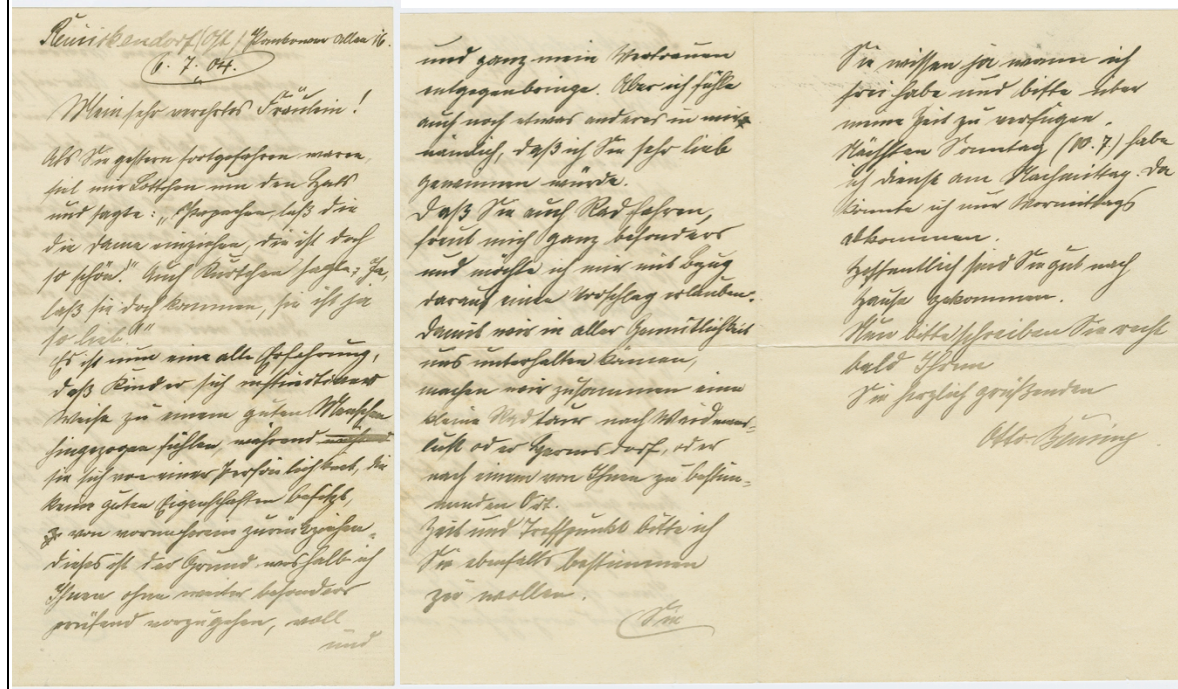 Reinickendorf (Ost) Pankower Allee 16.
6. 7. 04.
Mein sehr verehrtes Fräulein!
Als Sie gestern fortgefahren waren,
fiel mir Lottchen um den Hals
und sagte: „Papachen, laß die
die Dame einziehen, die ist doch
so schön!" Auch Kurtchen sagte: „Ja,
laß sie doch kommen, sie ist ja
so lieb."
Es ist nun eine alte Erfahrung,
daß Kinder sich instinktiver
Weise zu einem guten Menschen
hingezogen fühlen, während
sie sich von einer Persönlichkeit, die
keine guten Eigenschaften besitzt,
von vornherein zurückziehen.
dieses ist der Grund weshalb ich
Ihnen ohne weiter besonders
prüfend vorzugehen, voll
und
und ganz mein Vertrauen
entgegenbringe. Aber ich fühle
auch noch etwas anderes in mir
nämlich, daß ich Sie sehr lieb
gewinnen würde.
Daß Sie auch Rad fahren,
freut mich ganz besonders
und möchte ich mir mit Bezug
darauf einen Vorschlag erlauben.
Damit wir in aller Gemütlichkeit
uns unterhalten können,
machen wir zusammen eine
kleine Radtour nach Waidmanns-
lust oder Hermsdorf, oder
nach einem von Ihnen zu bestim-
menden Ort.
Zeit und Treffpunkt bitte ich
Sie ebenfalls bestimmen
zu wollen.
Sie
Sie wissen ja wann ich
frei habe und bitte über
meine Zeit zu verfügen.
Nächsten Sonntag (10. 7.) habe
ich Dienst am Nachmittag. Da
könnte ich nur Vormittags
abkommen.
Hoffentlich sind Sie gut nach
Hause gekommen.
Nun bitte schreiben Sie recht
bald Ihrem
Sie herzlich grüßenden
Otto